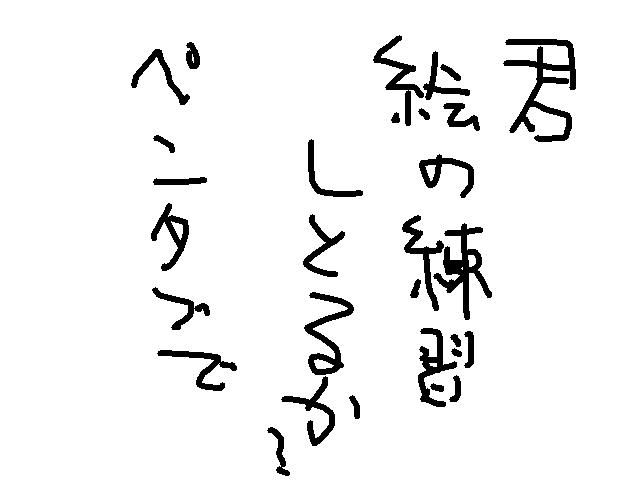 君
絵の練習
しとるか?
ペンタブで